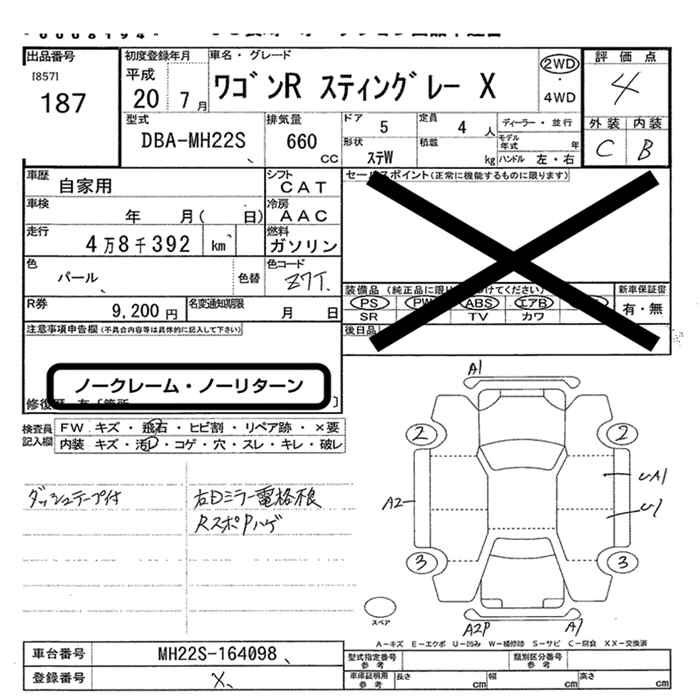 出品番号
[857]
187
初度登録年月
平成
20 7月
車名・グレード
ワゴンR スティングレー X
2WD
・
4WD
評価点
4
外装 内装
C B
型式
DBA-MH22S
排気量
660
CC
ドア
5
定員
4 人
ディーラー・並行
モデル年式 年
形状
ステW
積載
kg
ハンドル 左・右
車歴
自家用
シフト
CAT
車検
年 月( 日)
冷房
AAC
走行
4万8千392 km
燃料
ガソリン
色
パール
色替
色コード
Z7T.
R券
9,200円
名変通知期限
月 日
セールスポイント(正常に機能するものに限ります)
装備品
PS PW ABS エアB
SR TV カワ
新車保証書
有・無
後日品
注意事項申告欄(不具合内容等は具体的に記入して下さい)
ノークレーム・ノーリターン
検査員
記入欄
FW キズ・飛石・ヒビ割・リペア跡・×要
内装 キズ・汚レ・コゲ・穴・スレ・キレ・破レ
ダッシュテープ付
右Dミラー電格不良
RスポPハゲ
A1
2 2
UA1
A2
U1
3 3
スペア
A2P A1
A-キズ E-エクボ U-凹み W-補修跡 S-サビ C-腐食 XX-交換済
車台番号
MH22S-164098
登録番号
X
型式指定番号
参考
類別区分番号
参考
車庫証明用
参考
長さ cm
幅 cm
高さ cm